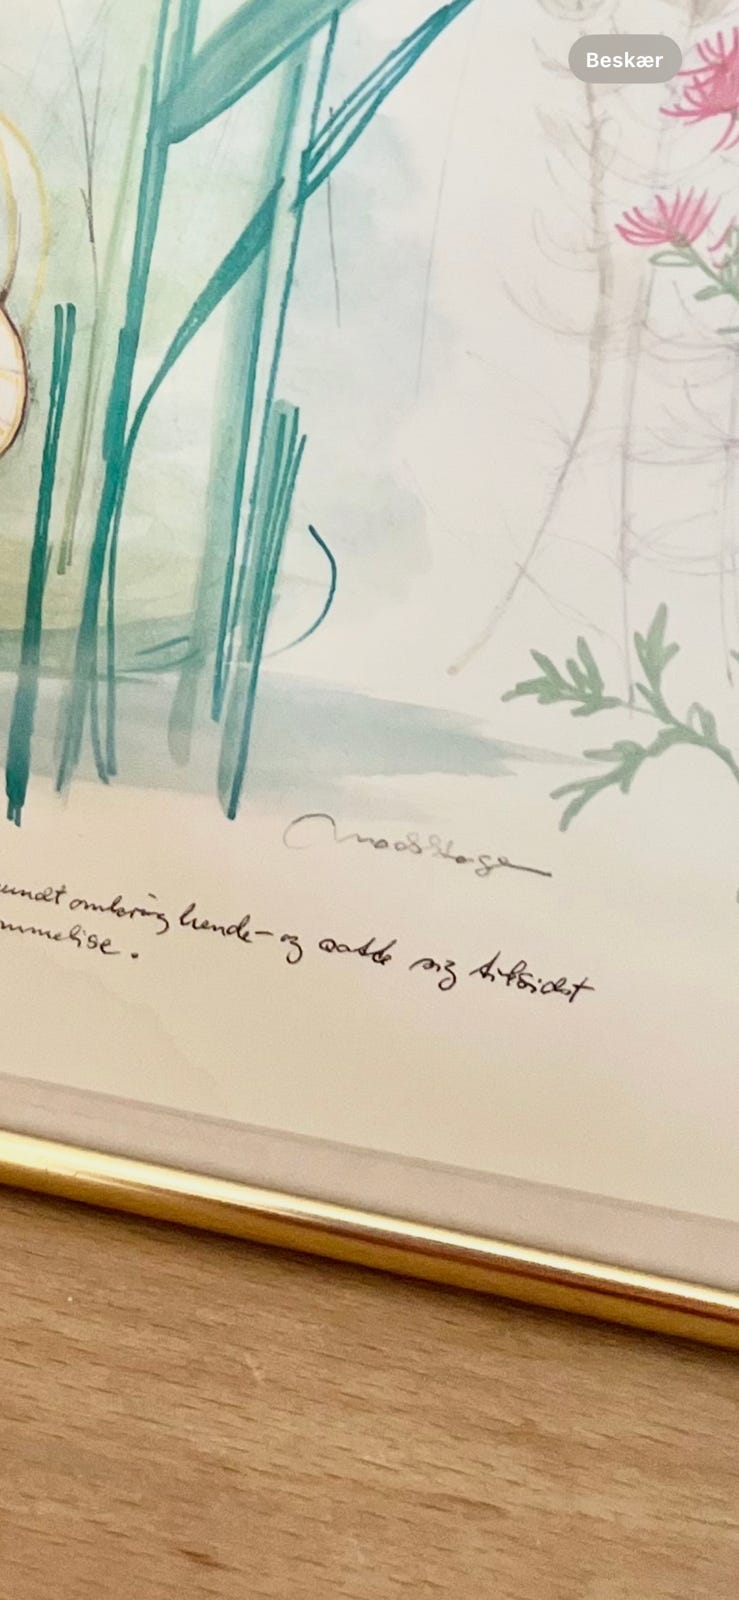 Beskær
Mads Stage
rundt omkring hende – og satte sig tilsidst
ommelise.